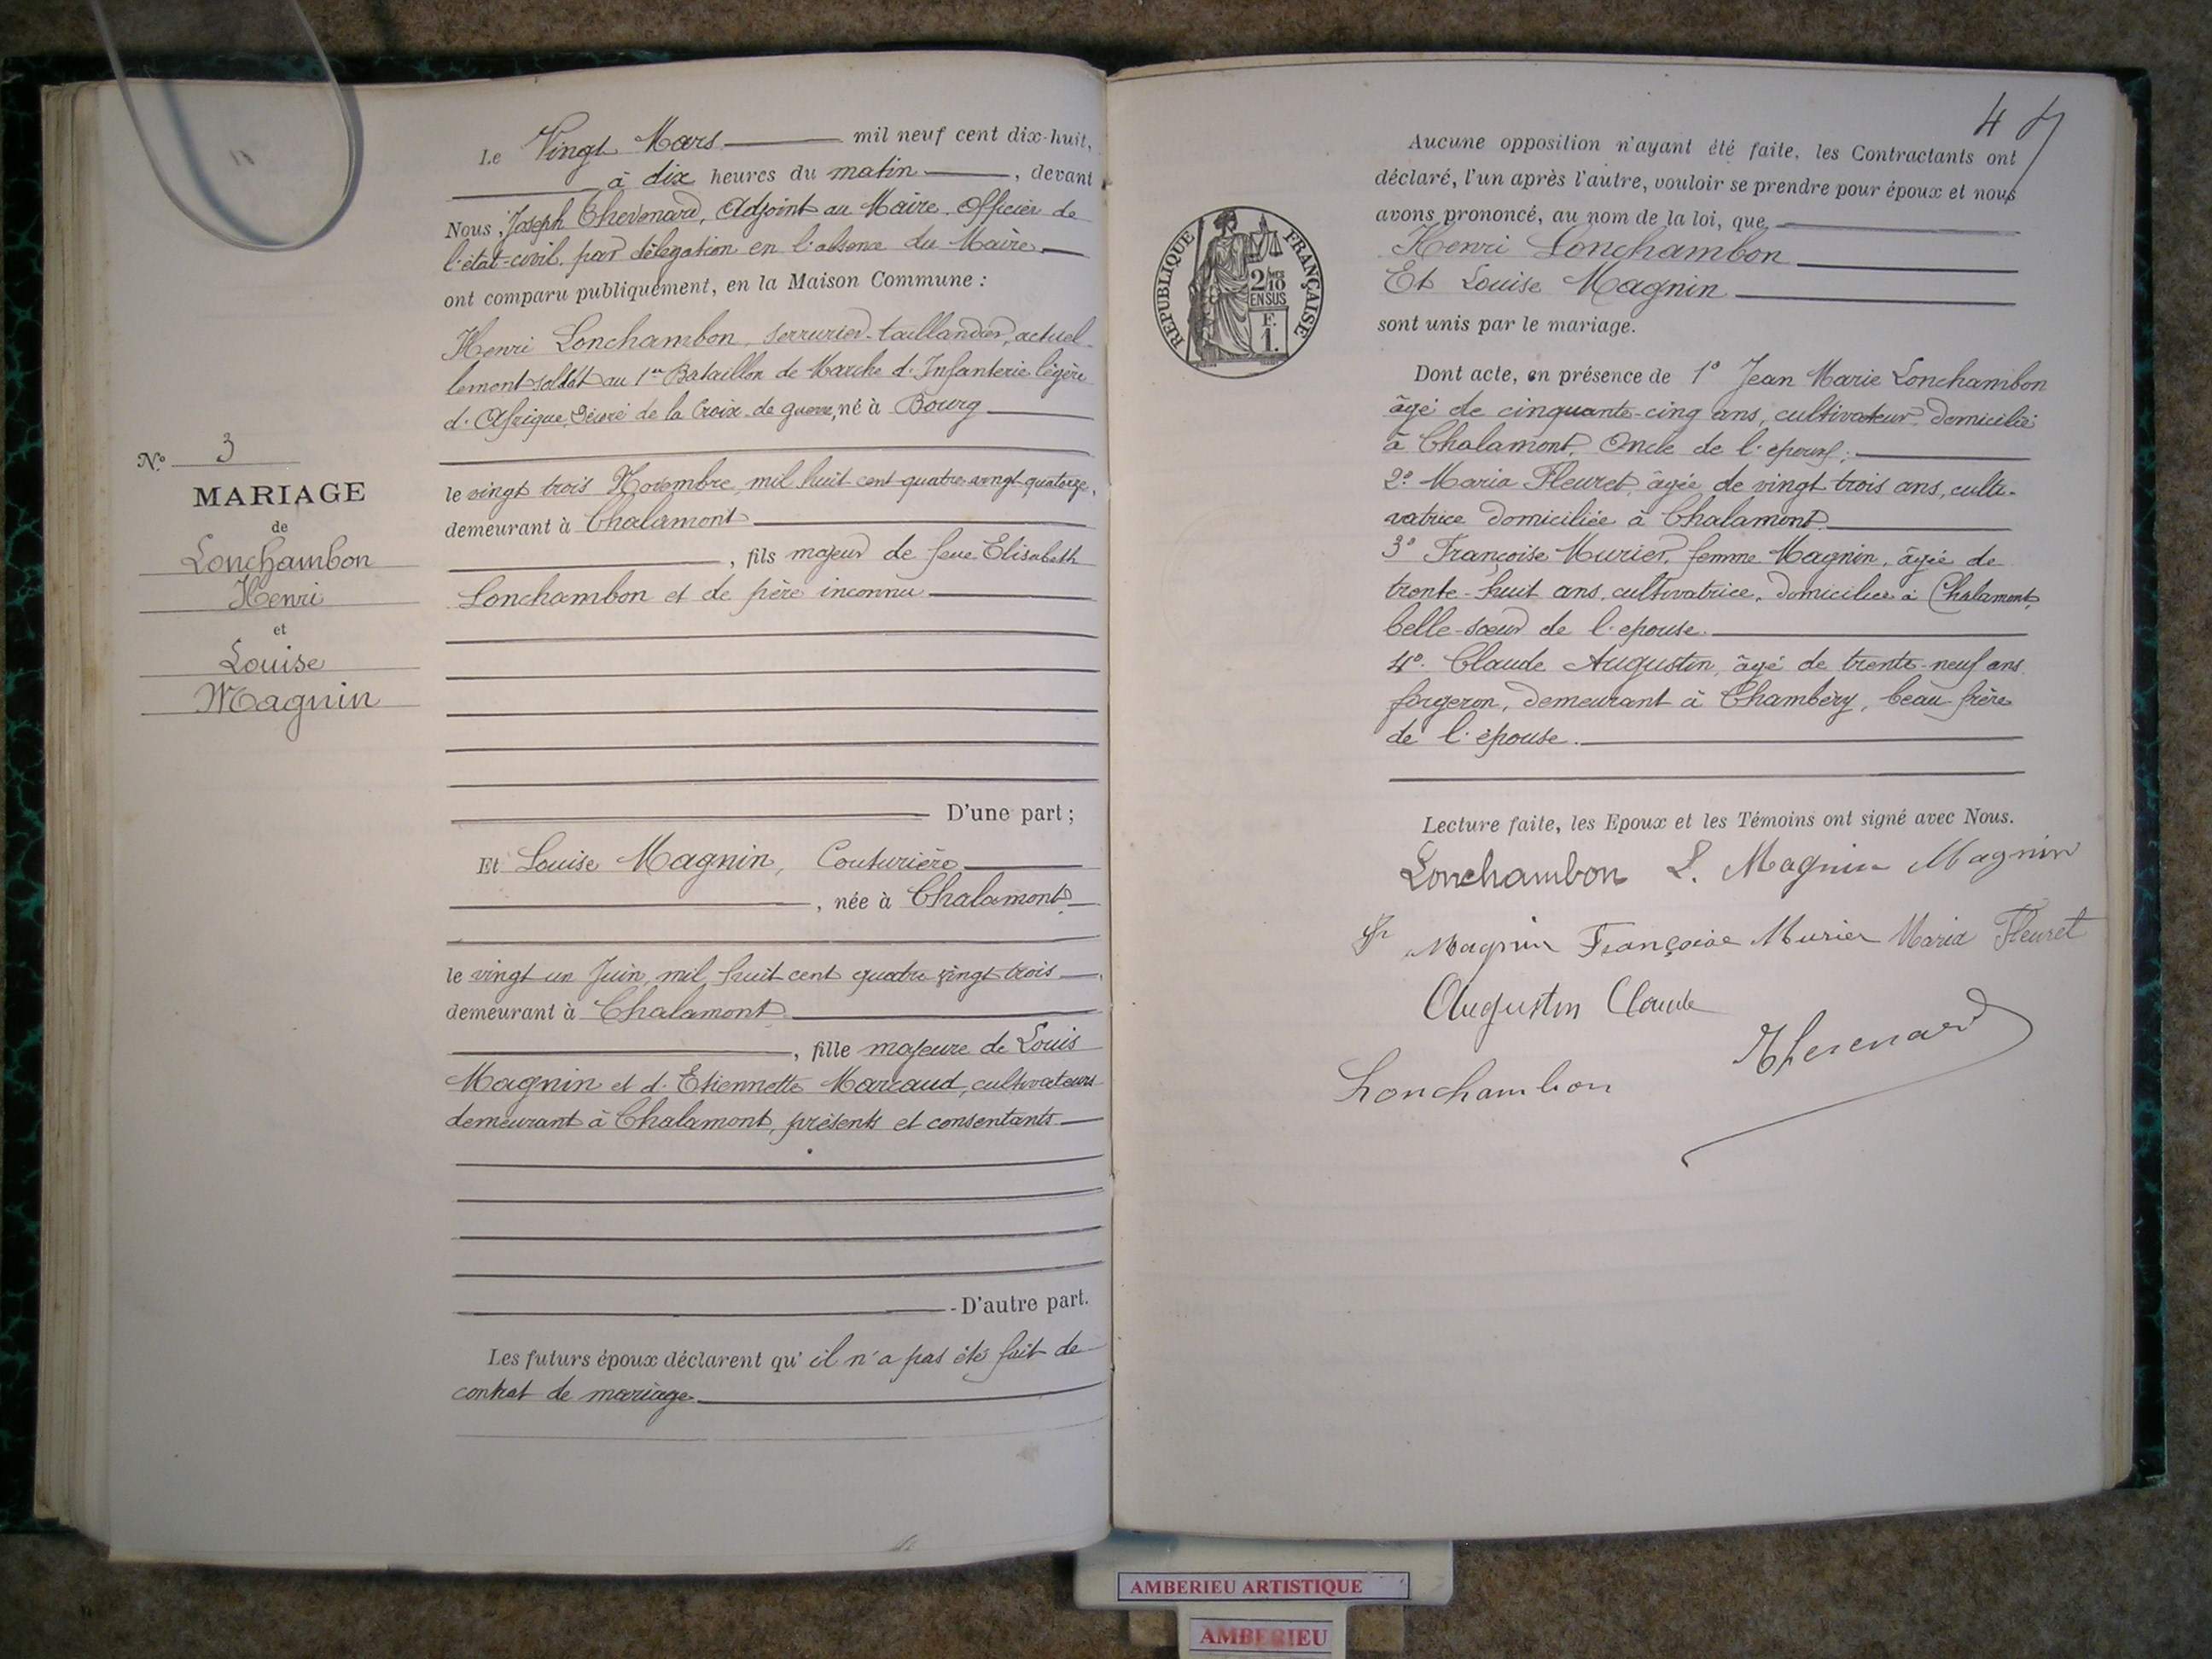 N.º 3
MARIAGE
de
Lonchambon
Henri
et
Louise
Magnin
Le Vingt Mars mil neuf cent dix-huit,
à dix heures du matin, devant
Nous, Joseph Thevenard, Adjoint au Maire. Officier de
l'état-civil. par délégation en l'absence du Maire
ont comparu publiquement, en la Maison Commune :
Henri Lonchambon, serrurier-taillandier, actuel-
lement soldat au 1er Bataillon de Marche d'Infanterie légère
d'Afrique, Décoré de la Croix de guerre, né à Bourg
le vingt trois Novembre, mil huit cent quatre vingt quatorze,
demeurant à Chalamont
, fils majeur de feue Elisabeth
Lonchambon et de père inconnu
D'une part ;
Et Louise Magnin, Couturière
, née à Chalamont
le vingt un Juin, mil huit cent quatre vingt trois,
demeurant à Chalamont
, fille majeure de Louis
Magnin et d'Etiennette Marcaud, cultivateurs
demeurant à Chalamont, présents et consentants
- D'autre part.
Les futurs époux déclarent qu'il n'a pas été fait de
contrat de mariage
4
Aucune opposition n'ayant été faite, les Contractants ont
déclaré, l'un après l'autre, vouloir se prendre pour époux et nous
avons prononcé, au nom de la loi, que
Henri Lonchambon
Et Louise Magnin
sont unis par le mariage.
RÉPUBLIQUE FRANÇAISE
2/10
EN SUS
F.
1.
Dont acte, en présence de 1° Jean Marie Lonchambon
âgé de cinquante-cinq ans, cultivateur domicilié
à Chalamont, Oncle de l'époux ;
2° Maria Fleuret, âgée de vingt trois ans, culti-
vatrice domiciliée à Chalamont.
3° Françoise Murier, femme Magnin, âgée de
trente-huit ans, cultivatrice, domiciliée à Chalamont,
belle-sœur de l'epouse.
4° Claude Augustin, âgé de trente-neuf ans
forgeron, demeurant à Chambéry, beau frère
de l'épouse.
Lecture faite, les Epoux et les Témoins ont signé avec Nous.
Lonchambon L. Magnin Magnin
Magnin Françoise Murier Maria Fleuret
Augustin Claude
Thevenard
Lonchambon
AMBERIEU ARTISTIQUE
AMBERIEU